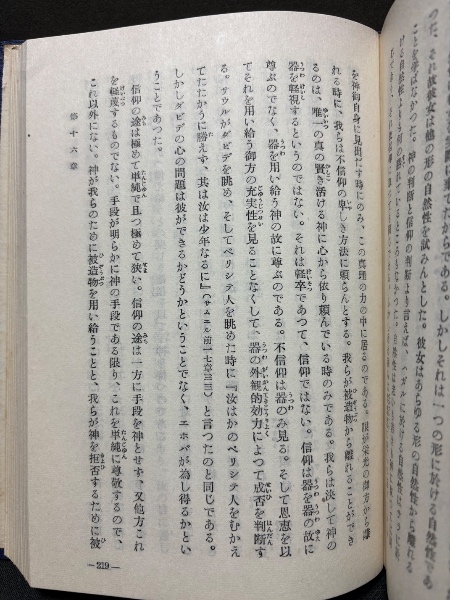 つた、それ故彼女は他の形の自然性を試みんとした。彼女はあらゆる形の自然性から離れる
ことを学ばなかつた。神の判断と信仰の判断より言えば、
を神御自身に見出だす時にのみ、この真理の力の中に居るのである。
れる時に、我らは不信仰の卑しき方法に頼らんとする。我らが被造物から離れることができ
るのは、唯一の真の賢き活ける神に心から依り頼んでいる時のみである。我らは決して神の
器を軽視するというのではない。それは軽卒であつて、信仰ではない。信仰は器を器の故に
尊ぶのでなく、器を用い給う神の故に尊ぶのである。不信仰は器のみ見る。そして恩恵を以
てそれを用い給う御方の充実性を見ることなくして、器の外観的効力によつて成否を判断す
る。サウルがダビデを眺め、そしてペリシテ人を眺めた時に『汝はかのペリシテ人をむかえ
てたたかうに勝えず、其は汝は少年なるに』(サムエル前一七章三三)と言つたのと同じである。
しかしダビデの心の問題は彼ができるかどうかということでなく、エホバが為し得るかとい
うことであつた。
信仰の途は極めて単純で且つ極めて狭い。信仰の途は一方に手段を神とせず、又他方これ
を軽蔑するものでない。手段が明らかに神の手段である限り、これを単純に尊敬するので、
これ以外にない。神が我らのために被造物を用い給うことと、我らが神を拒否するために被
第十六章
—219—